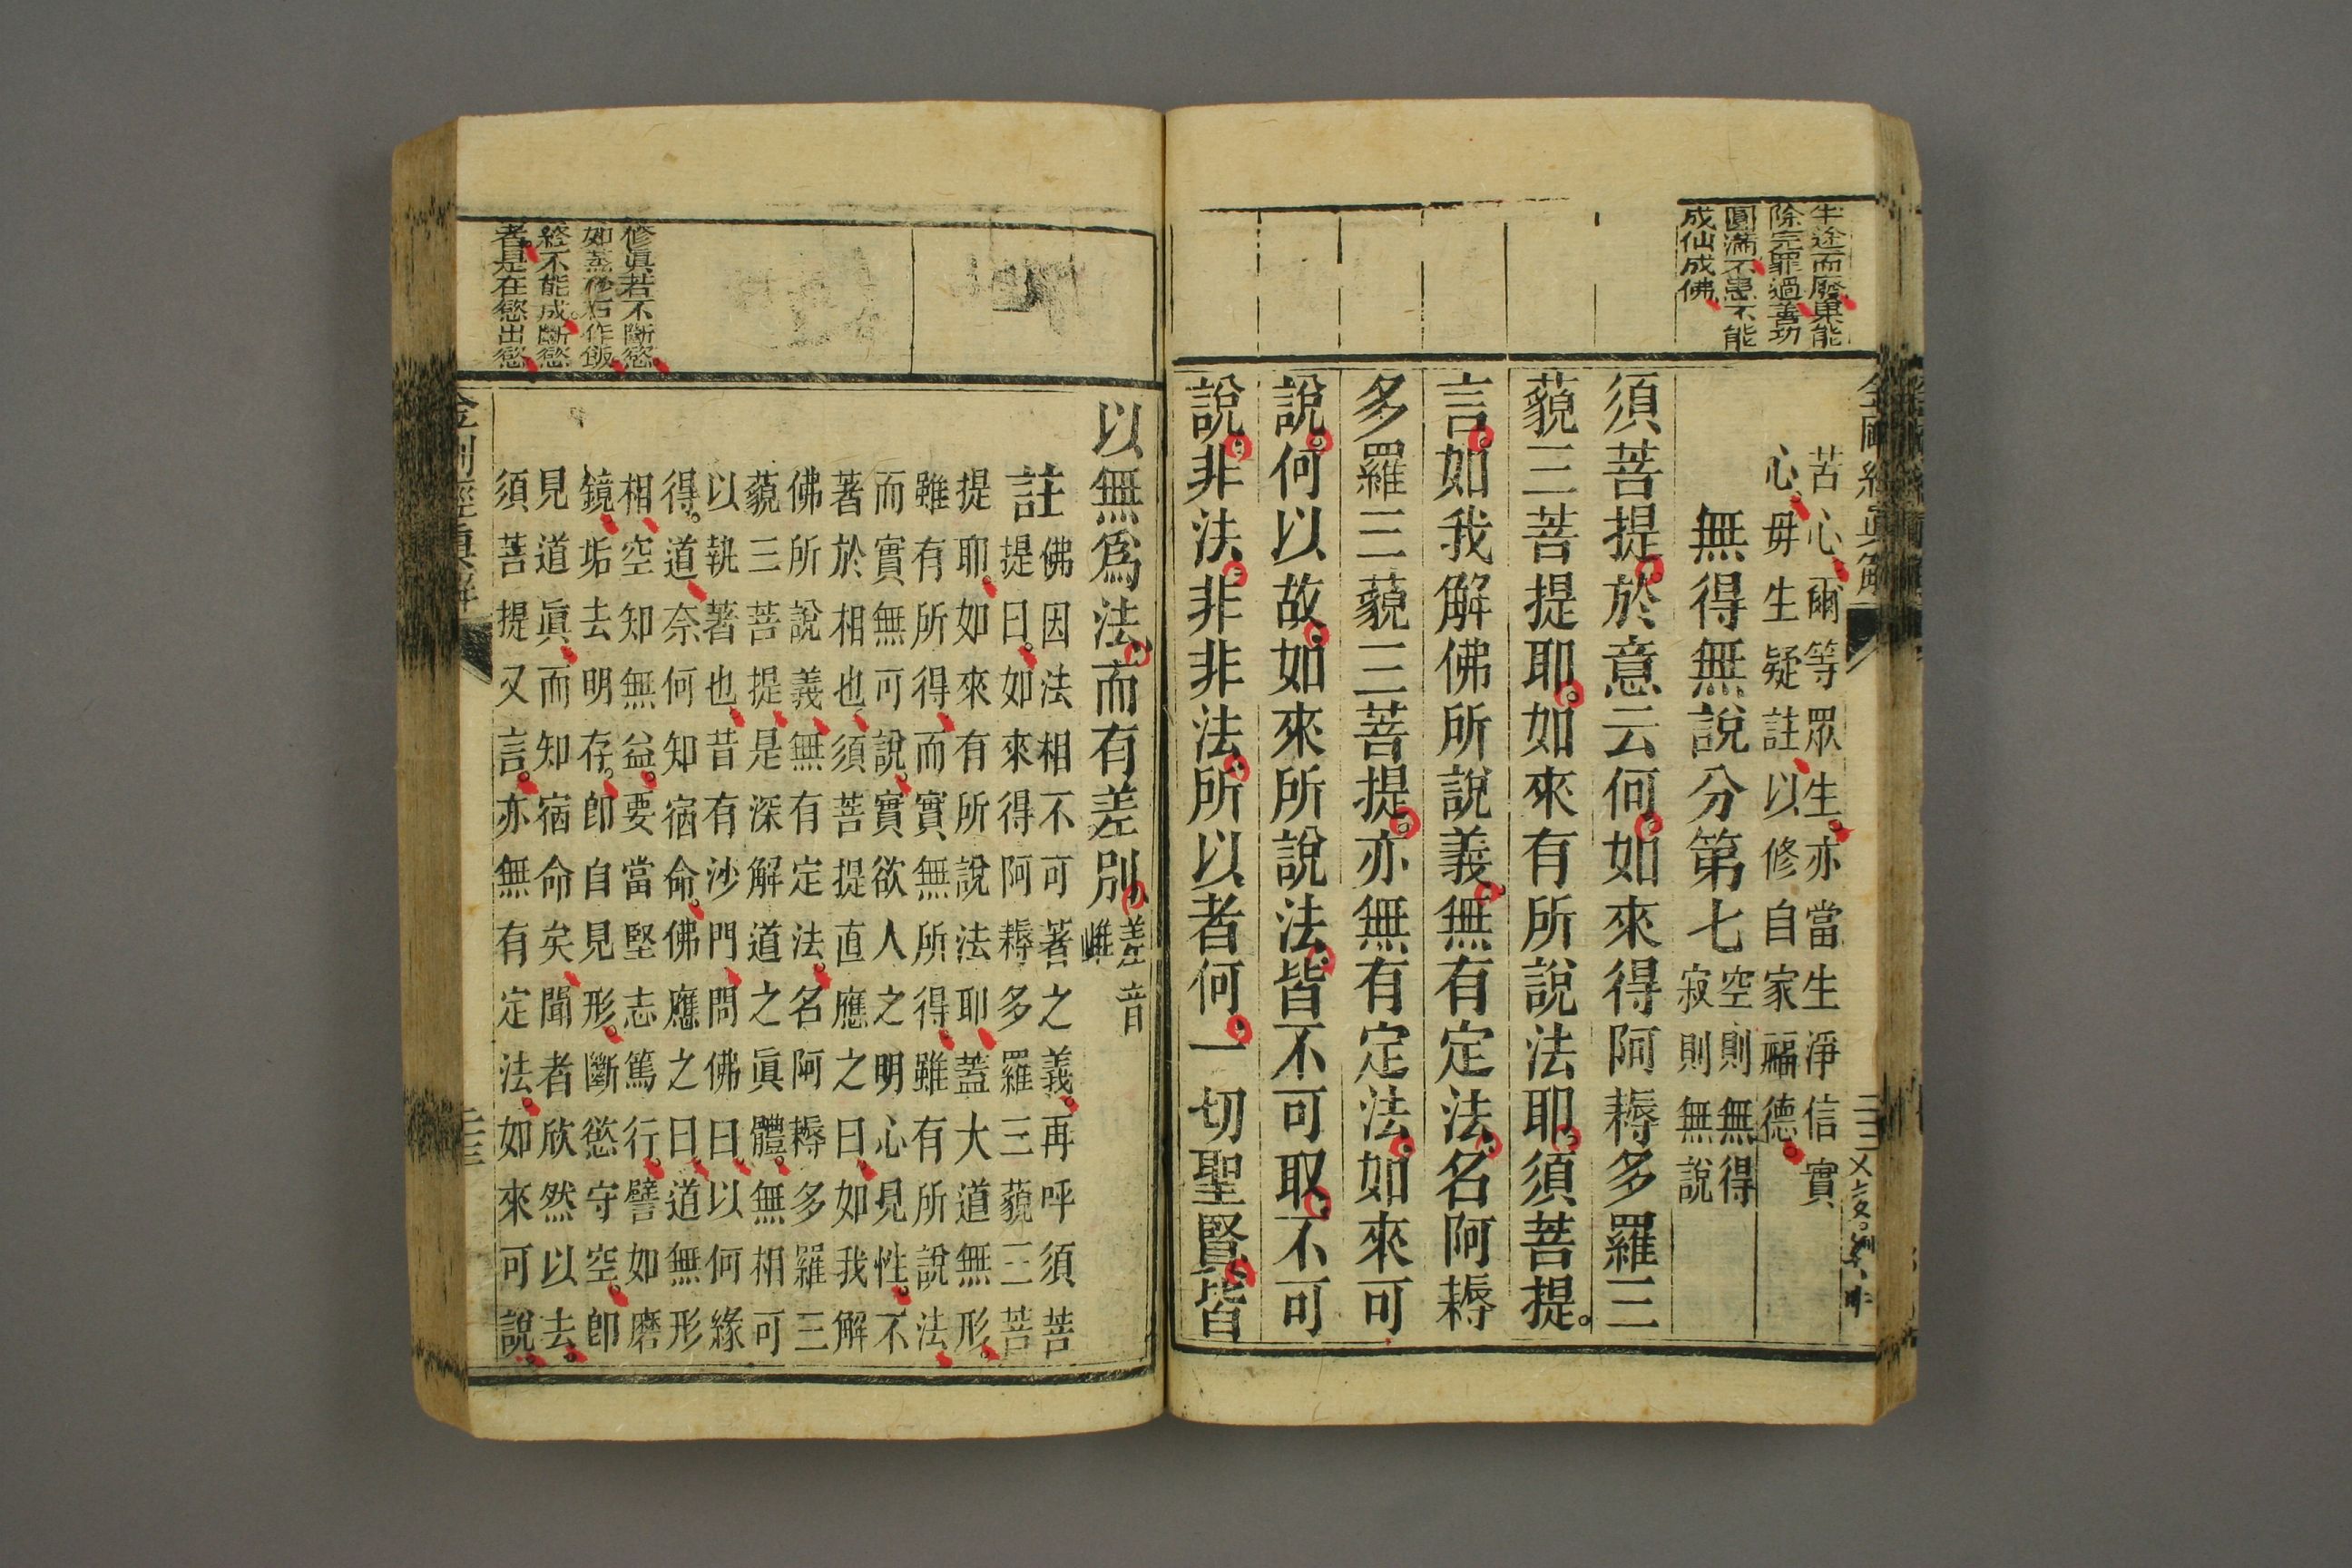 半途而廢果能
除完罪過善功
圓滿不患不能
成仙成佛
金剛經真解
苦心爾等眾生。亦當生淨信實
心毋生疑註以修自家福德
無得無說分第七
空則無得
寂則無說
須菩提於意云何如來得阿耨多羅三
藐三菩提耶。如來有所說法耶須菩提。
言如我解佛所說義。無有定法名阿耨
多羅三藐三菩提。亦無有定法如來可
說。何以故如來所說法皆不可取不可
說非法非非法所以者何一切聖賢皆
以無爲法而有差別
差音
註佛因法相不可著之義。再呼須菩
提曰。如來得阿耨多羅三藐三菩
提耶。如來有所說法耶蓋大道無形。
雖有所得而實無所得雖有所說法
而實無可說。實欲人之明心見性。不
著於相也須菩提直應之曰如我解
佛所說義無有定法。名阿耨多羅三
藐三菩提是深解道之眞體。無相可
以執著也昔有沙門問佛曰。以何緣
得。道奈何知宿命。佛應之曰道無形
相空知無益。要當堅志篤行。譬如磨
鏡垢去明存。卽自見形。斷慾守空。卽
見道眞而知宿命矣聞者欣然以去。
須菩提又言。亦無有定法。如來可說。
修眞若不斷慾
如蒸砂石作飯
終不能成。斷慾
者。是在慾出慾
金剛經眞解